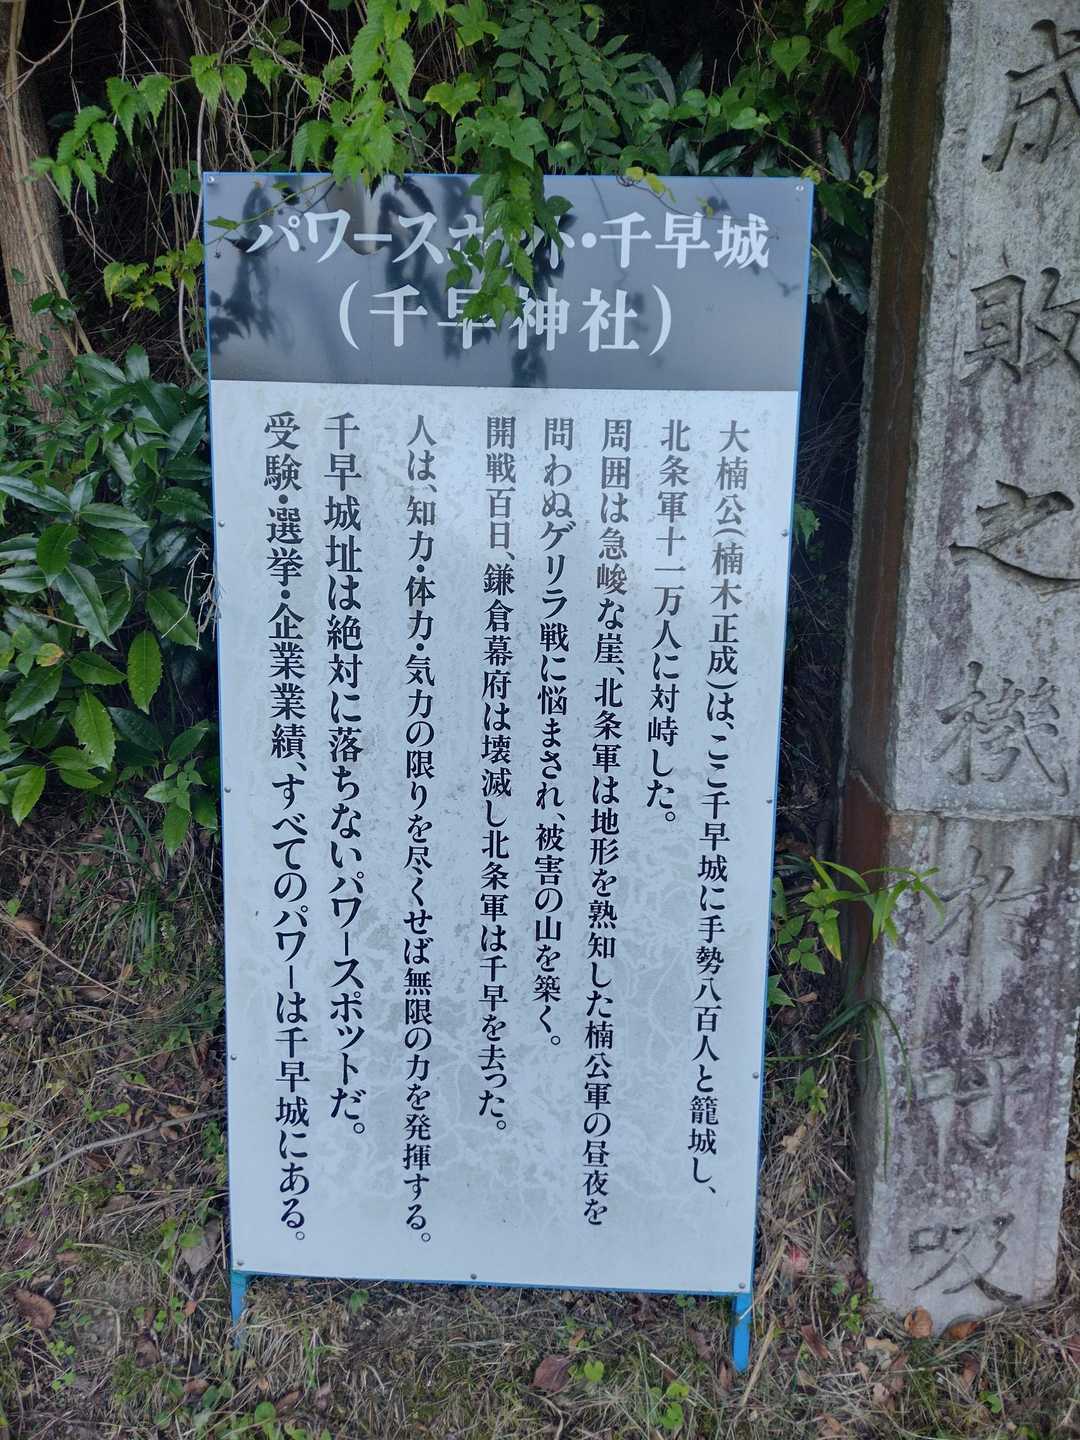 パワースポット・千早城
(千早神社)
大楠公(楠木正成)は、ここ千早城に手勢八百人と籠城し、
北条軍十一万人に対峙した。
周囲は急峻な崖、北条軍は地形を熟知した楠公軍の昼夜を
問わぬゲリラ戦に悩まされ、被害の山を築く。
開戦百日、鎌倉幕府は壊滅し北条軍は千早を去った。
人は、知力・体力・気力の限りを尽くせば無限の力を発揮する。
千早城址は絶対に落ちないパワースポットだ。
受験・選挙・企業業績、すべてのパワーは千早城にある。
成敗之機